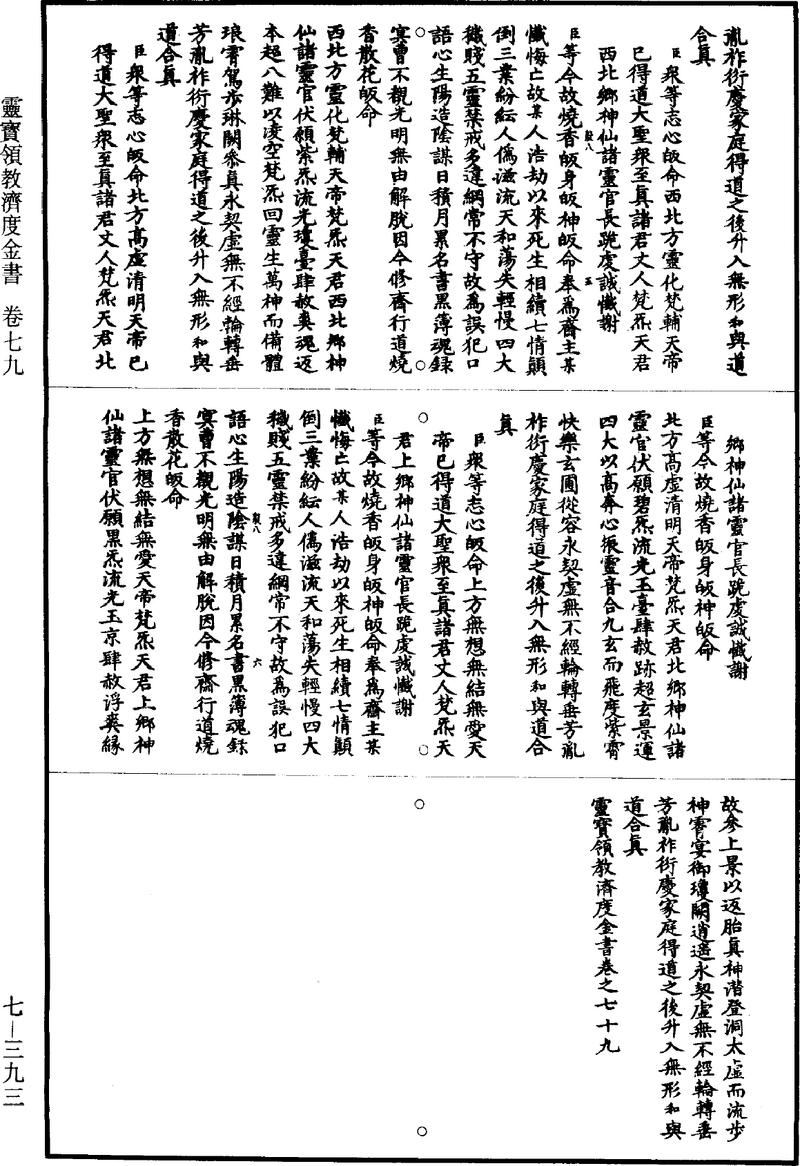 胤祚衍慶家庭得道之後升入無形和與道
合眞
臣衆等志心皈命西北方靈化梵輔天帝
已得道大聖衆至眞諸君丈人梵炁天君
西北鄉神仙諸靈官長跪虔誠懺謝
臣等今故燒香皈身皈神皈命奉爲齋主某
懺悔亡故某人浩劫以來死生相續七情顚
倒三業紛紜人僞滋流天和蕩失輕慢四大
穢賤五靈禁戒多違綱常不守故爲誤犯口
語心生陽造陰謀日積月累名書黑簿魂錄
冥曹不覩光明無由解脫因今修齋行道燒
香散花皈命
西北方靈化梵輔天帝梵炁天君西北鄉神
仙諸靈官伏願紫炁流光瓊臺肆赦爽魂返
本超八難以凌空梵炁回靈生萬神而備體
琅霄駕步琳闕參眞永契虛無不經輪轉垂
芳胤祚衍慶家庭得道之後升入無形和與
道合眞
臣衆等志心皈命北方高虛清明天帝已
得道大聖衆至眞諸君丈人梵炁天君北
鄉神仙諸靈官長跪虔誠懺謝
臣等今故燒香皈身皈神皈命
北方高虛清明天帝梵炁天君北鄉神仙諸
靈官伏願碧炁流光玉臺肆赦跡超玄景運
四大以高奔心振靈音合九玄而飛度紫霄
快樂玄圃從容永契虛無不經輪轉垂芳胤
祚衍慶家庭得道之後升入無形和與道合
眞
臣衆等志心皈命上方無想無結無愛天
帝已得道大聖衆至眞諸君丈人梵炁天
君上鄉神仙諸靈官長跪虔誠懺謝
臣等今故燒香皈身皈神皈命奉爲齋主某
懺悔亡故某人浩劫以來死生相續七情顚
倒三業紛紜人僞滋流天和蕩失輕慢四大
穢賤五靈禁戒多違綱常不守故爲誤犯口
語心生陽造陰謀日積月累名書黑簿魂錄
冥曹不覩光明無由解脫因今修齋行道燒
香散花皈命
上方無想無結無愛天帝梵炁天君上鄉神
仙諸靈官伏願黑炁流光玉京肆赦浮爽緣
故參上景以返胎眞神潛登洞太虛而流步
神霄宴御瓊闕逍遙永契虛無不經輪轉垂
芳胤祚衍慶家庭得道之後升入無形和與
道合眞
靈寶領教濟度金書卷之七十九
靈寶領教濟度金書 卷七九
七—三九三